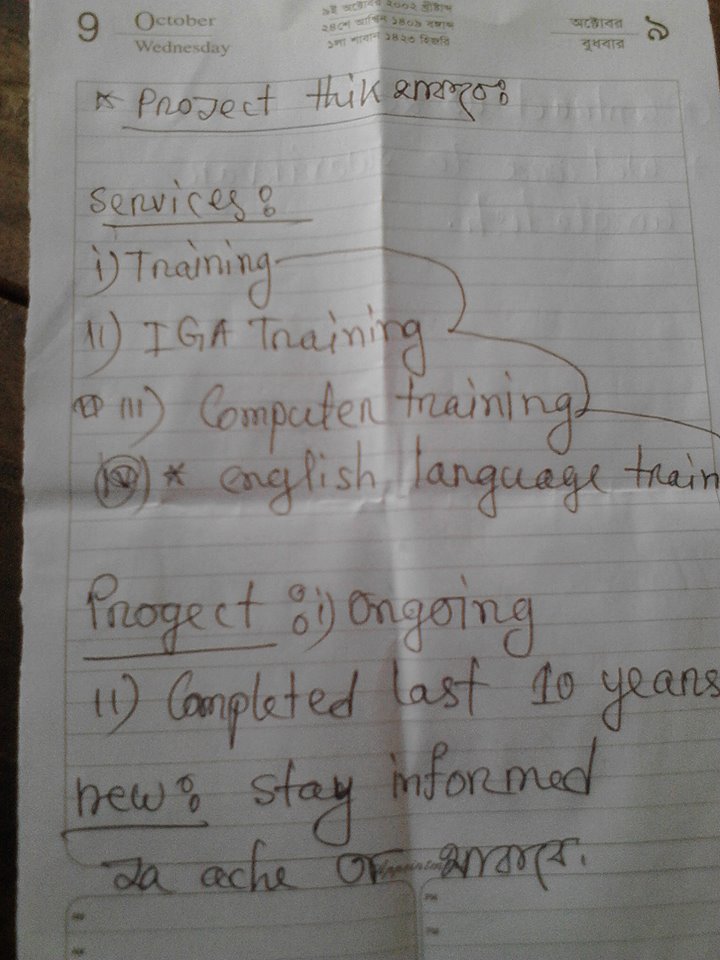 9 October
Wednesday
৯ই অক্টোবর ২০০২ খ্রীষ্টাব্দ
২৪শে আশ্বিন ১৪০৯ বঙ্গাব্দ
১লা শাবান ১৪২৩ হিজরি
অক্টোবর ৯
বুধবার
* Project thik থাকবেঃ
Services :
i) Training
II) IGA Training
III) Computer training
* english language train
Progect : i) ongoing
II) Completed last 10 years
new : stay informed
ache তা থাকবে.